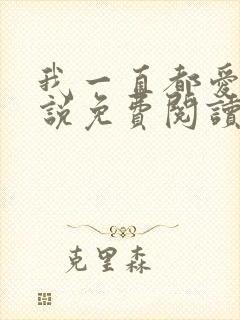 我一直都愛
說免費閱讀
克里森